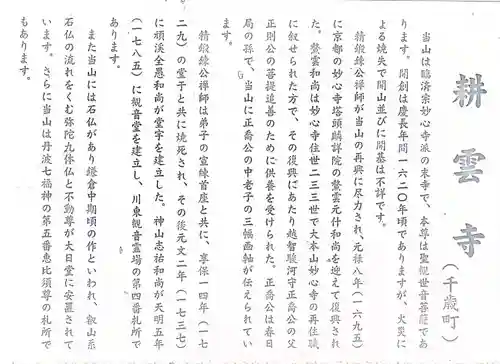 耕雲寺
（千歳町）
当山は臨済宗妙心寺派の末寺で、本尊は聖観世音菩薩であ
ります。開創は慶長年間一六二〇年頃でありますが、火災に
よる焼失で開山並びに開基は不詳です。
精綴緑公禅師が当山の再興に尽力され元禄八年（一六九五）
に京都の妙心寺塔頭麟祥院の鰲雲元什和尚を迎えて復興され
た。鰲雲和尚は妙心寺住世二三三世で大本山妙心寺の再住職
に叙せられた方で、その復興にあたり越智駿河守正喬公の父
正則公の菩提追善のために供養を受けられた。正喬公は春日
局の孫で、当山に正喬公の中老子の三幅画軸が伝えられてい
ます。
精綴緑公禅師は弟子の宣練首座と共に、享保一四年（一七
二九）の堂于と共に焼死され、その後元文二年（一七三七）
に頑渓全愚和尚が堂宇を建立した。神山志祐和尚が天明五年
（一七八五）に観音堂を建立し、川東観音霊場の第四番札所で
あります。
また当山には石仏があり鎌倉中期頃の作といわれ、叡山系
石仏の流れをくむ弥陀九体仏と不動尊が大日堂に安置されて
います。さらに当山は丹波七福神の第五番恵比須尊の札所で
もあります。